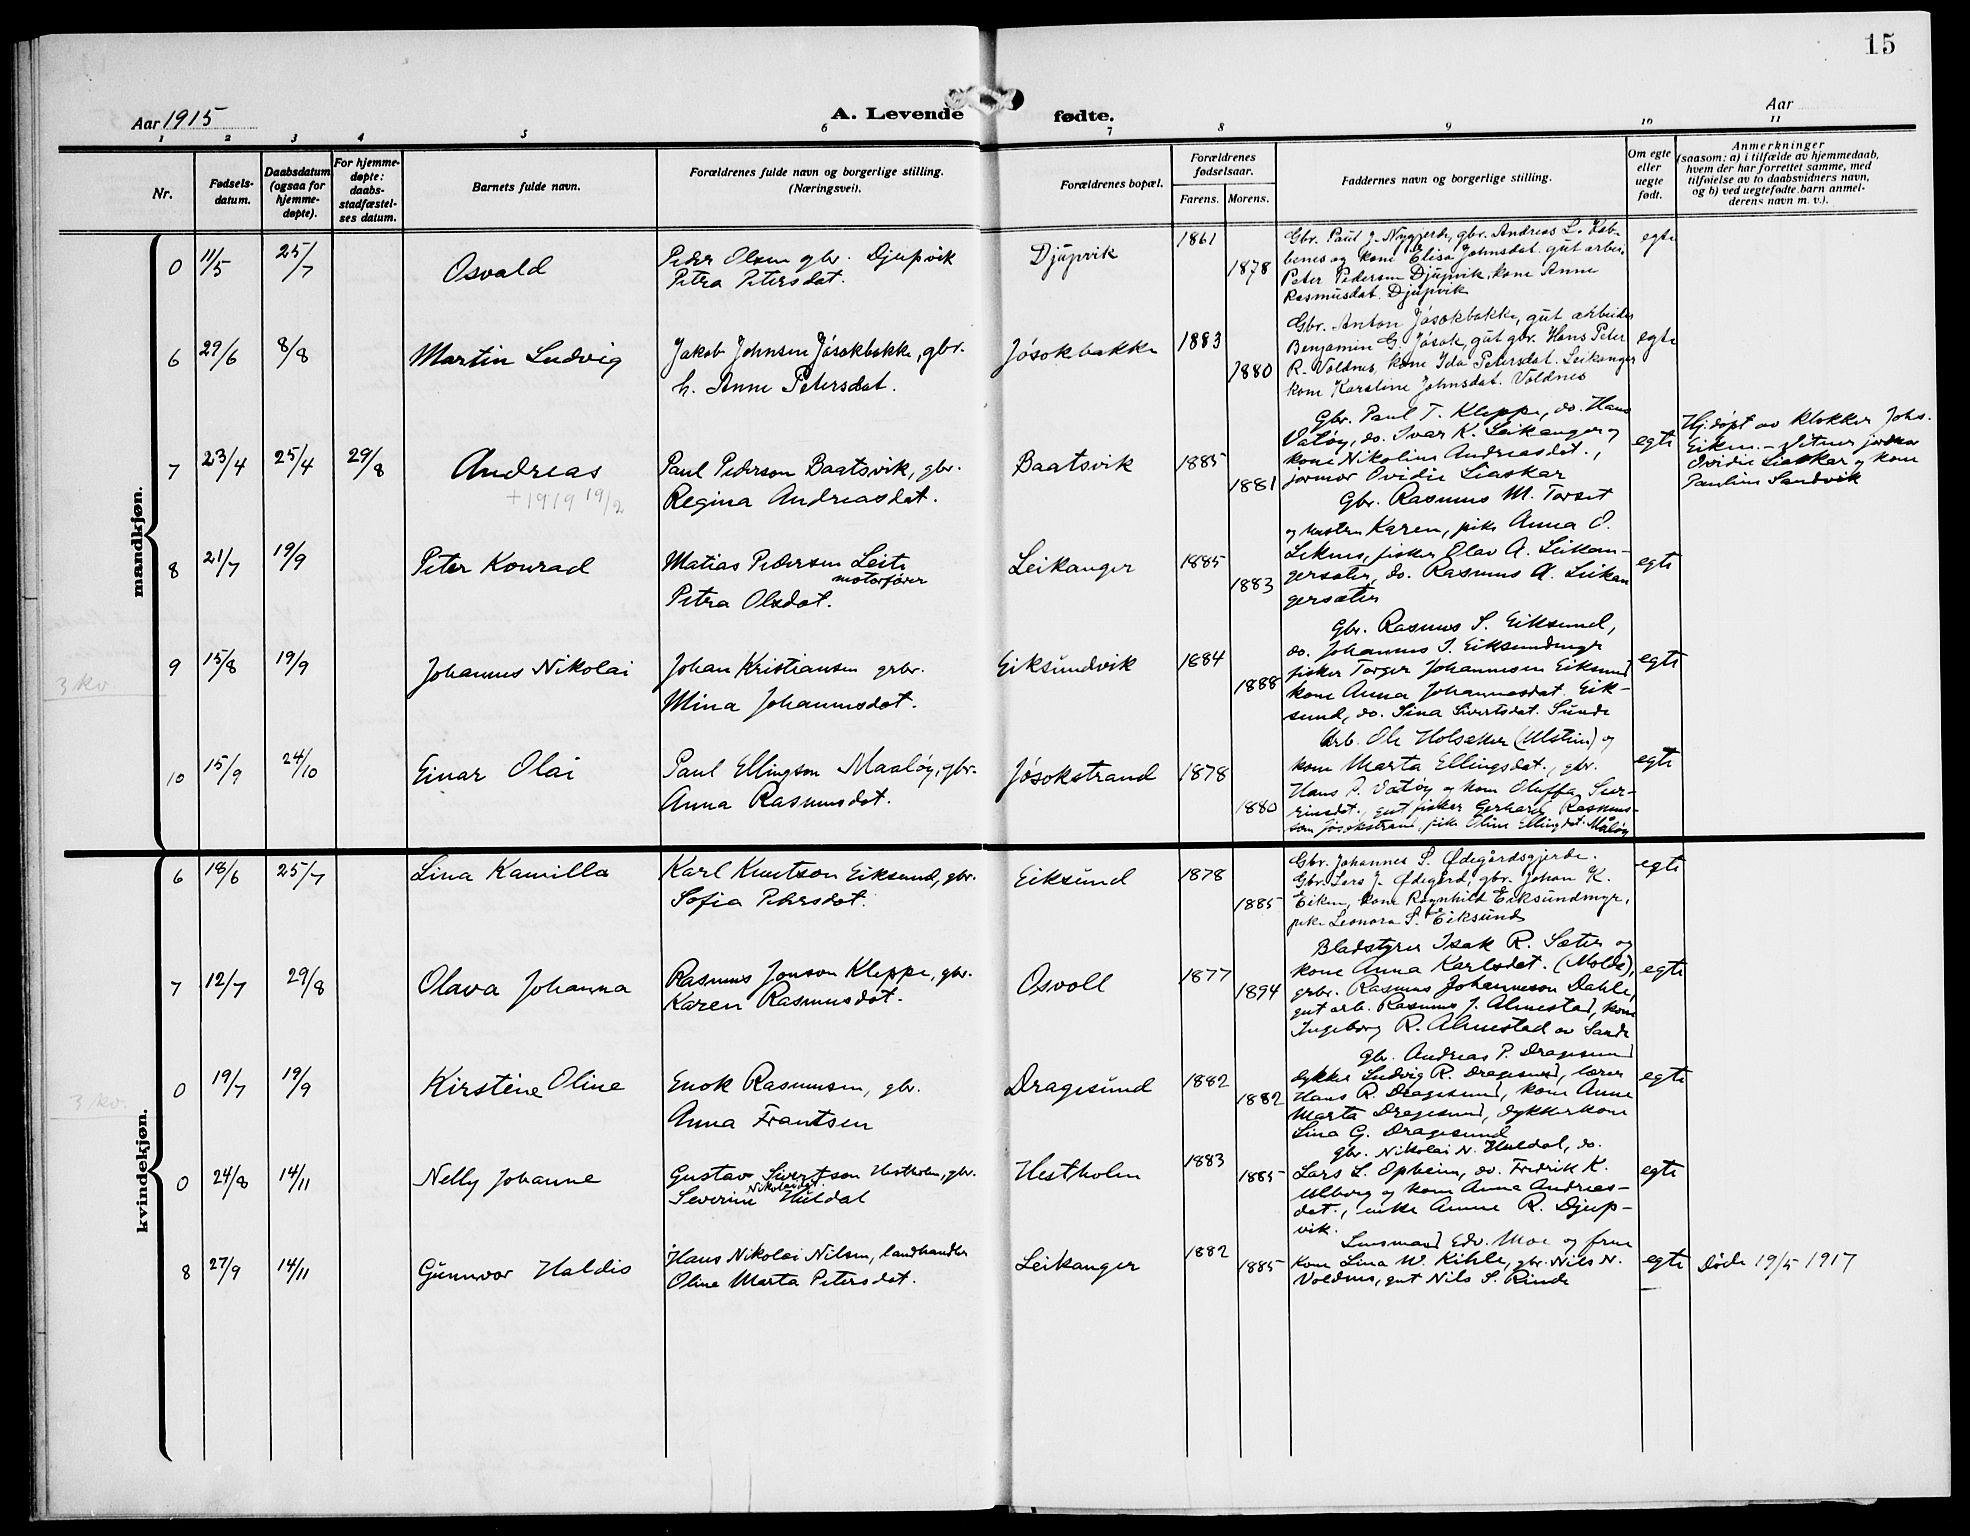 15
Aar 1915
A. Levende fødte.
Aar
1 2 3 4 5 6 7 8 9 10 11
Nr.
Fødsels-
datum.
Daabsdatum
(ogsaa for
hjemme-
døpte).
For hjemme-
døpte:
daabs-
stadfæstel-
ses datum.
Barnets fulde navn.
Forældrenes fulde navn og borgerlige stilling.
(Næringsvei).
Forældrenes bopæl.
Forældrenes
fødselsaar.
Farens. Morens.
Faddernes navn og borgerlige stilling.
Om egte
eller
uegte
født.
Anmerkninger
(saasom: a) i tilfælde av hjemmedaab,
hvem der har forrettet samme, med
tilføielse av to daabsvidners navn,
og b) ved uegtefødte barn anmel-
derens navn m. v.).
mandkjøn.
0 11/5 25/7 Osvald
Peder Olsen gbr. Djupvik
Petra Petersdat.
Djupvik 1861 1878
Gbr. Paul J. Nygjerde, gbr. Andreas L. Hab-
benes og kone Elisa Johnsdat. gut arbei.
Peter Pedersen Djupvik, kone Anne
Rasmusdat. Djupvik
egte
6 29/6 8/8 Martin Ludvig
Jakob Johnsen Jøsokbakke, gbr.
h. Anne Petersdat.
Jøsokbakke 1883 1880
Gbr. Anton Jøsokbakke, gut arbeider
Benjamin G. Jøsok, gut gbr. Hans Peter
R. Voldnes, kone Ida Petersdat. Leikanger
kone Karoline Johnsdat. Voldnes
egte
7 23/4 25/4 29/8 Andreas
+ 1919 19/2
Paul Pederson Baatsvik, gbr.
Regina Andreasdat.
Baatsvik 1885 1881
Gbr. Paul T. Kleppe, do. Hans
Vatøy, do. Ivar K. Leikanger og
kone Nikoline Andreasdat.,
jormor Ovidie Liaskar
egte
Hj.døpt av klokker Johs.
Eiken. – Vitner jordmor
Ovidie Liaskar og kone
Pauline Sandvik
8 21/7 19/9 Peter Konrad
Matias Pedersen Leite
motorfører
Petra Olsdat.
Leikanger 1885 1883
Gbr. Rasmus M. Torset
og hustru Karen, pike Anna O.
Leknes, fisker Olav A. Leikan-
gersæter, do. Rasmus A. Leikan
gersæter
egte
9 15/8 19/9 Johannes Nikolai
Johan Kristiansen grbr.
Mina Johannesdat.
Eiksundvik 1884 1888
Gbr. Rasmus S. Eiksund,
do. Johannes I. Eiksundmyr
fisker Torger Johannesen Eiksund
kone Anna Johannesdat. Eik-
sund, do. Sina Sivertsdat. Sunde
egte
3 kv.
10 15/9 24/10 Einar Olai
Paul Ellingson Maaløy, gbr.
Anna Rasmusdat.
Jøsokstrand 1878 1880
Arb. Ole Holsæker (Ulstein) og
kone Marta Ellingsdat., gbr.
Hans P. Vatøy og kone Oluffa Seve-
rinsdat., gut fisker Gerhard Rasmus-
son Jøsokstrand, pike Oline Ellingsdat. Måløy
egte
kvindekjøn.
6 18/6 25/7 Lina Kamilla
Karl Knutson Eiksund, gbr.
Sofia Petersdat.
Eiksund 1878 1885
Gbr. Johannes S. Ødegårdsgjerde.
Gbr. Lars J. Ødegård, gbr. Johan K.
Eiken, kone Ragnhild Eiksundmyr,
pike Leonora S. Eiksund
egte
7 12/7 29/8 Olava Johanna
Rasmus Jonson Kleppe, gbr.
Karen Rasmusdat.
Osvoll 1877 1894
Bladstyrer Isak R. Sæter og
kone Anna Karlsdat. (Molde),
grbr. Rasmus Johanneson Dahle,
gut arb. Rasmus J. Almestad, kone
Ingeborg R. Almestad av Sande
egte
0 19/7 19/9 Kirstine Oline
Enok Rasmusen, gbr.
Anna Frantsen
Dragesund 1882 1882
Gbr. Andreas P. Dragesund
dykker Ludvig R. Dragesund, lærer
Hans R. Dragesund, kone Anne
Marta Dragesund, dykkerkone
Lina G. Dragesund
egte
3 kv.
0 24/8 14/11 Nelly Johanne
Gustav Sivertson Hestholm, gbr.
Nikolaidat.
Severine Huldal
Hestholm 1883 1885
gbr. Nikolai N. Huldal, do.
Lars L. Opheim, do. Fredrik K.
Ulborg og kone Anna Andreas-
dat., enke Anne R. Djup-
vik.
egte
8 27/9 14/11 Gunnvor Haldis
Hans Nikolai Nilsen, landhandler
Oline Marta Petersdat.
Leikanger 1882 1885
Lensmand Edv. Moe og frue
kone Lina W. Kihle, gbr. Nils N.
Voldnes, gut Nils S. Rinde
egte
Døde 19/5 1917